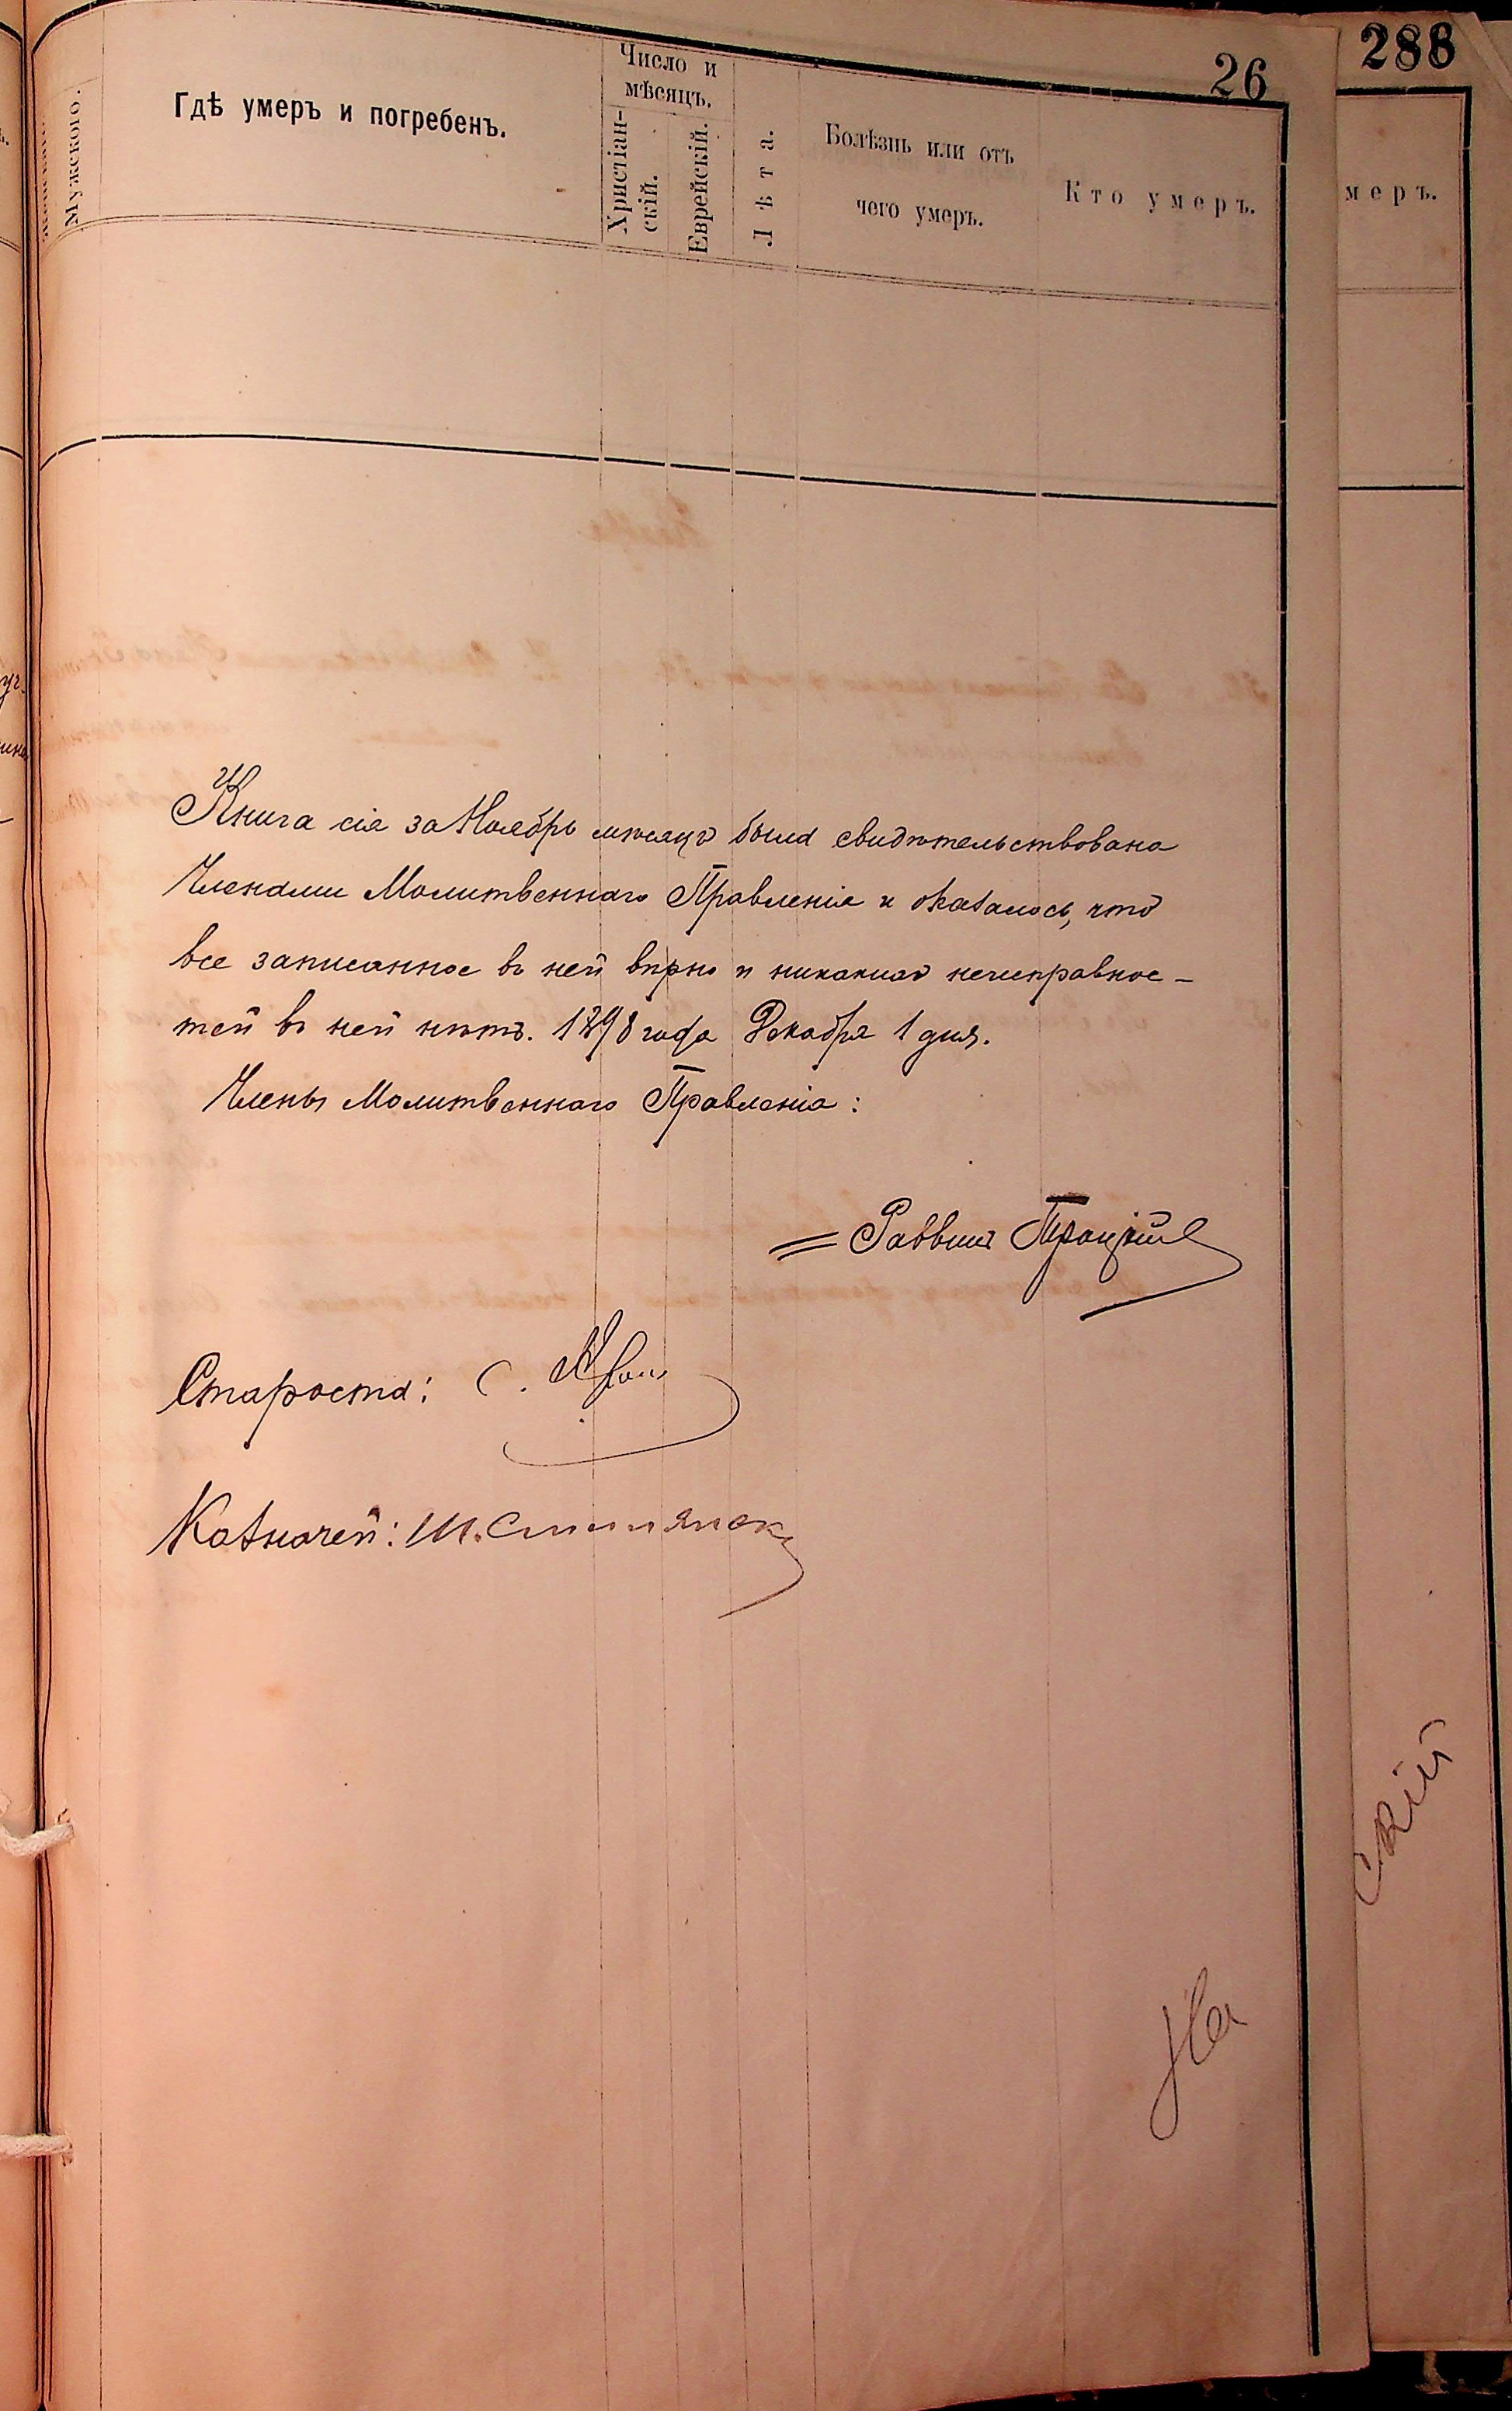 26
288
Число и
мѣсяцъ.
Мужского.
Гдѣ умеръ и погребенъ.
Христіан-
скій.
Еврейскій.
Лѣта.
Болѣзнь или отъ
чего умеръ.
Кто умеръ.
меръ.
Книга сія за Ноябрь мѣсяцъ была свидѣтельствована
Членами Молитвеннаго Правленія и оказалось, что
все записанное въ ней вѣрно и никакихъ неисправнос-
тей въ ней нѣтъ. 1898 года Декабря 1 дня.
Члены Молитвеннаго Правленія:
Раввинъ
Староста: С.
Казначей: Ш.
скій
На